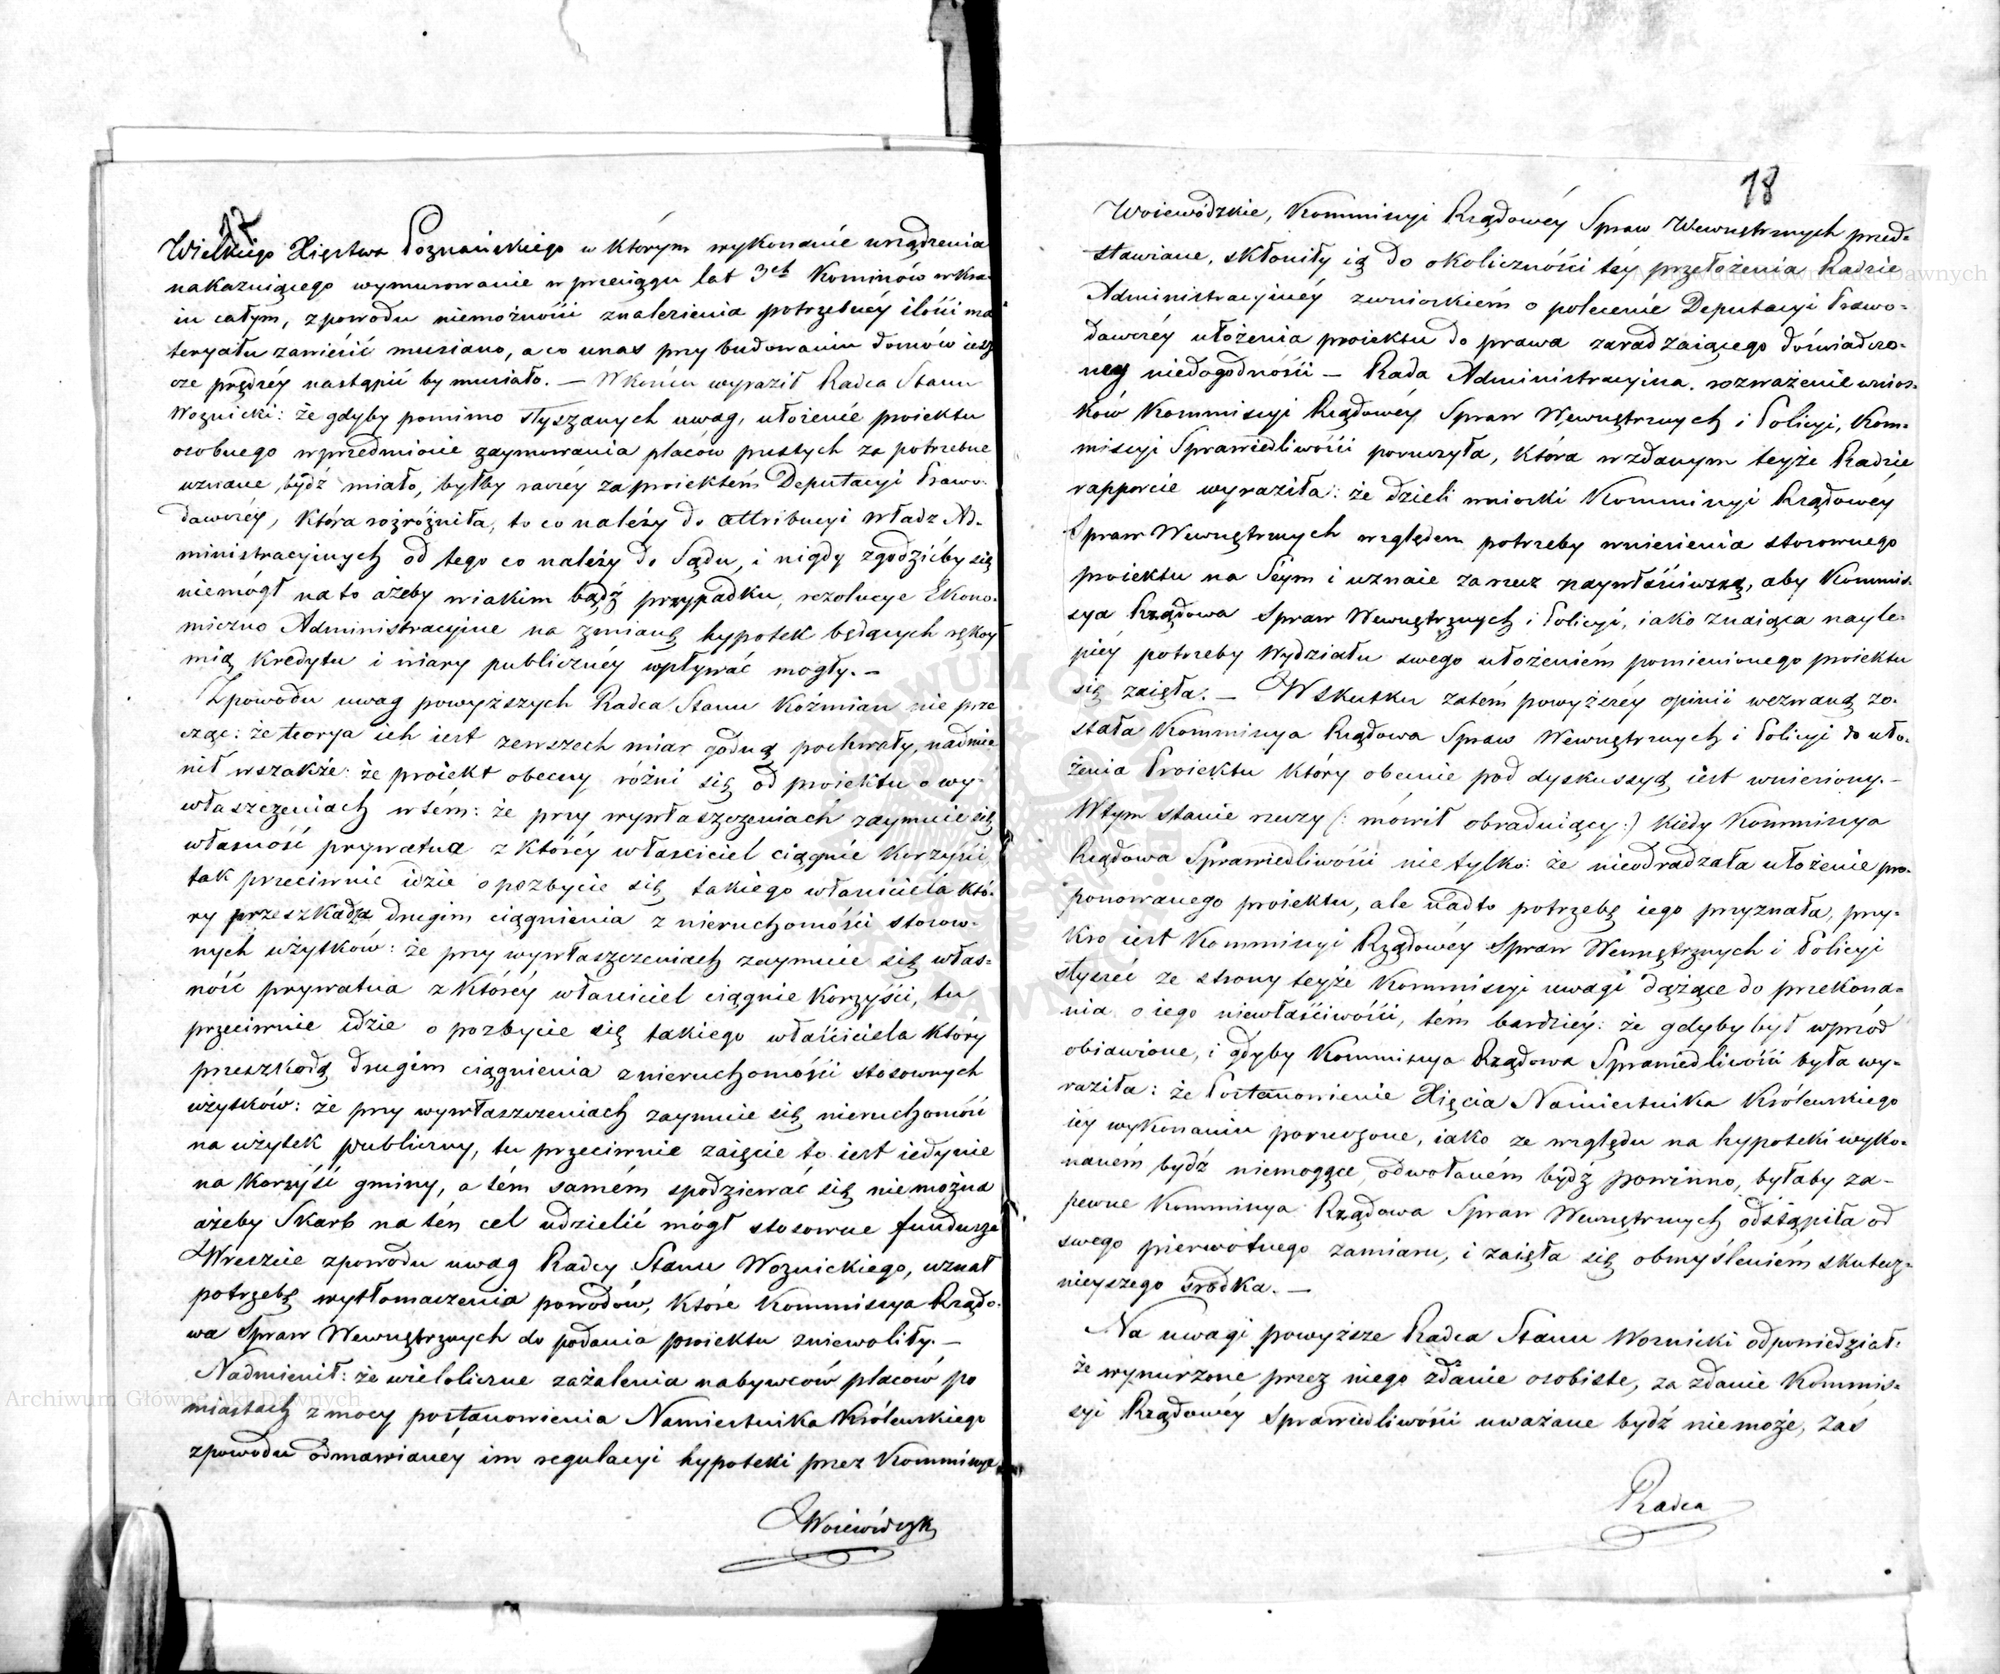 Wielkiego Xięstwa Poznańskiego w którym wykonanie urządzenia
nakazuiącego wymurowanie w przeciągu lat 3ch Kominów w kra-
iu całym, z powodu niemożności znalezienia potrzebnéy ilości ma
teryału zawiesić musiano, a co u nas przy budowaniu domów iesz
cze prędzéy nastąpić by musiało. — W końcu wyraził Radca Stanu
Woznicki: że gdyby pomimo słyszanych uwag, ułożenie proiektu
osobnego w przedmiocie zaymowania placów pustych za potrzebne
uznane bydź miało, byłby raczéy za proiektém Deputacyi Prawo-
dawczéy, która rozróżniła, to co należy do attribucyi władz Ad-
ministracyinych od tego co należy do Sądu, i nigdy zgodziéby się
niemógł na to ażeby w iakim bądź przypadku, rezolucye Ekono-
miczno Administracyine na zmianę hypotek będących rękoy
mią kredytu i wiary publicznéy wpływać mogły. —
Z powodu uwag powyższych Radca Stanu Koźmian nie prze
cząc: że teorya ich iest zewszech miar godną pochwały, nadmie
nił wszakże: że proiekt obecny różni się od proiektu o wy-
właszczeniach w tém: że przy wywłaszczeniach zaymuie się
własność prywatna z któréy właściciel ciągnie korzyści,
tak przeciwnie idzie o pozbycie się takiego właściciela któ-
ry przeszkadza drugim ciągnienia z nieruchomości stosow-
nych użytków: że przy wywłaszczeniach zaymuie się włas-
ność prywatna z któréy właściciel ciągnie korzyści, tu
przeciwnie idzie o pozbycie się takiego właściciela który
przeszkodą drugim ciągnienia z nieruchomości stosownych
użytków: że przy wywłaszczeniach zaymuie się nieruchomość
na użytek publiczny, tu przeciwnie zaięcie to iest iedynie
na korzyść gminy, a tém samém spodziewać się niemożna
ażeby Skarb na tén cel udzielić mógł stosowne fundusze
Wreszcie z powodu uwag Radcy Stanu Woznickiego, uznał
potrzebę wytłomaczenia powodów, które Kommissya Rządo-
wa Spraw Wewnętrznych do podania proiektu zniewoliły. —
Nadmienił: że wieloliczne zażalenia nabywców placów po
miastach z mocy postanowienia Namiestnika Królewskiego
z powodu odmawianéy im regulacyi hypoteki przez Kommissye
Woiewódzk
18
Woiewódzkie, Kommissyi Rządowéy Spraw Wewnętrznych przed-
stawiane, skłoniły ią do okoliczności téy przełożenia Radzie
Administracyinéy z wnioskiém o polecenie Deputacyi Prawo-
dawczéy ułożenia proiektu do prawa zaradzaiącego doświadczo-
néy niedogodności — Rada Administracyina, rozważenie wnios-
ków Kommissyi Rządowéy Spraw Wewnętrznych i Policyi, Kom-
missyi Sprawiedliwości poruczyła, która w zdanym teyże Radzie
rapporcie wyraziła: że dzieli wnioski Kommissyi Rządowéy
Spraw Wewnętrznych względem potrzeby wniesienia stosownego
proiektu na Seym i uznaie za rzecz naywłaściwszą, aby Kommis-
sya Rządowa Spraw Wewnętrznych i Policyi, iako znaiąca nayle-
piéy potrzeby Wydziału swego ułożeniém pomienionego proiektu
się zaięła. — W Skutku zatém powyższéy opinii wezwaną zo-
stała Kommissya Rządowa Spraw Wewnętrznych i Policyi do uło-
żenia Proiektu który obecnie pod dyskussyą iest wniesiony. —
W tym stanie rzeczy (: mówił obraduiący :) kiedy Kommissya
Rządowa Sprawiedliwości nie tylko: że nieodradzała ułożenie pro-
ponowanego proiektu, ale nadto potrzebę iego przyznała, przy-
kro iest Kommissyi Rządowéy Spraw Wewnętrznych i Policyi
słyszeć ze strony teyże Kommissyi uwagi dążące do przekona-
nia o iego niewłaściwości, tém bardziéy: że gdyby był wprzód
obiawione, i gdyby Kommissya Rządowa Sprawiedliwości była wy-
raziła: że Postanowienie Xięcia Namiestnika Królewskiego
iéy wykonaniu poruczone, iako ze względu na hypoteki wyko-
naném bydź niemogące, odwołaném bydź powinno, byłaby za-
pewne Kommissya Rządowa Spraw Wewnętrznych odstąpiła od
swego pierwotnego zamiaru, i zaięła się obmyśleniém skutecz-
nieyszego środka. —
Na uwagi powyższe Radca Stanu Woznicki odpowiedział:
że wynurzone przez niego zdanie osobiste, za zdanie Kommis-
syi Rządowéy Sprawiedliwości uważane bydź niemoże, zaś
Radca
Archiwum Główne Akt Dawnych